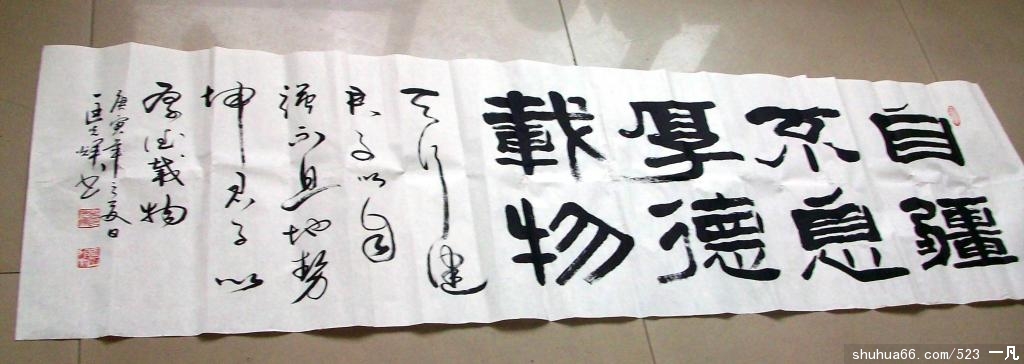 自疆
不息
厚德
載物
天行健
君子以自
強不息地勢
坤君子以
厚德載物
庚寅年之夏日
shuhua66.com/523 一凡